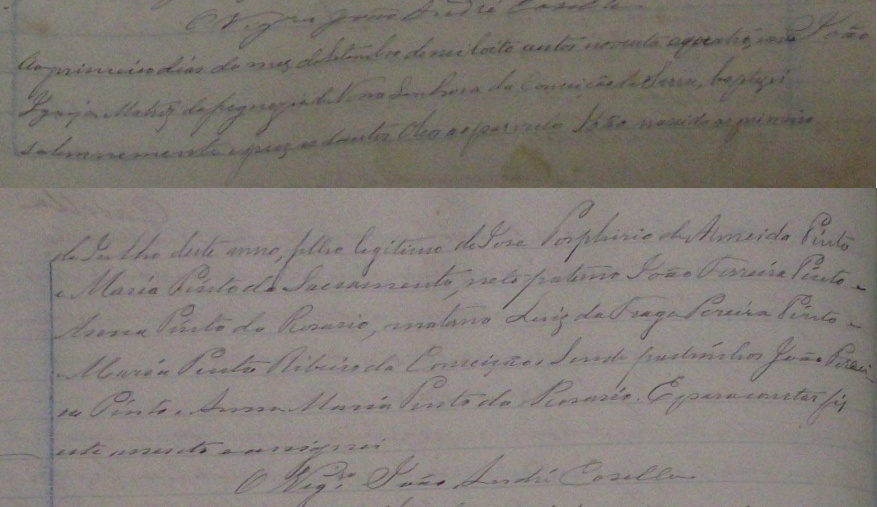 O Vigro João André Casella
João
Ao primeiro dias do mez de Setembro de mil oito centos noventa e quatro, nesta
Igreja Matriz da freguezia de Nossa Senhora da Conceição da Serra, baptizei
solemnemente e puz os santos oleos ao parvulo João nascido ao primeiro
de Julho deste anno, filho legitimo de José Porphirio de Almeida Pinto
e Maria Pinto do Sacramento, neto paterno João Ferreira Pinto e
Anna Pinto do Rosario, materno Luiz da Fraga Pereira Pinto e
Maria Pinto Ribeiro da Conceição. Sendo padrinhos João Perei-
ra Pinto e Anna Maria Pinto do Rosario. E para constar fiz
este assento e assignei
O Vigro João André Casella